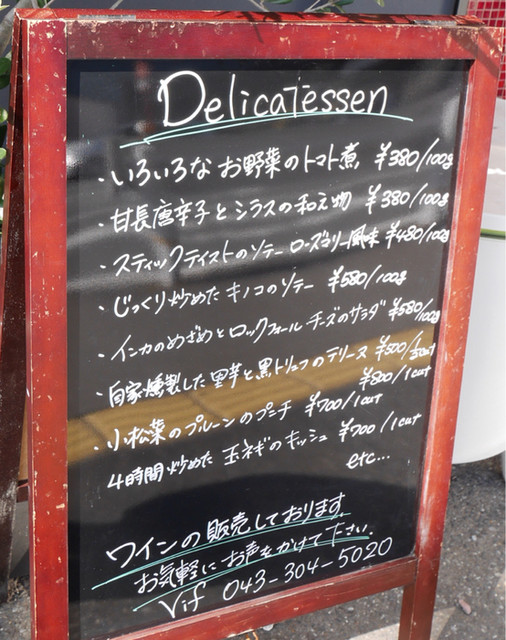 Delicatessen
・いろいろな お野菜のトマト煮 ¥380/100g
・甘長唐辛子とシラスの和え物 ¥380/100g
・スティックテイストのソテー ローズマリー風味 ¥480/100g
・じっくり炒めた キノコのソテー ¥580/100g
・インカのめざめとロックフォールチーズのサラダ ¥580/100g
・自家燻製した里芋と黒トリュフのテリーヌ ¥500/
¥800/1cut
・小松菜のプルーンの ¥700/1cut
4時間炒めた 玉ネギのキッシュ ¥700/1cut
etc...
ワインの販売しております
お気軽にお声をかけて下さい。
Vif 043-304-5020